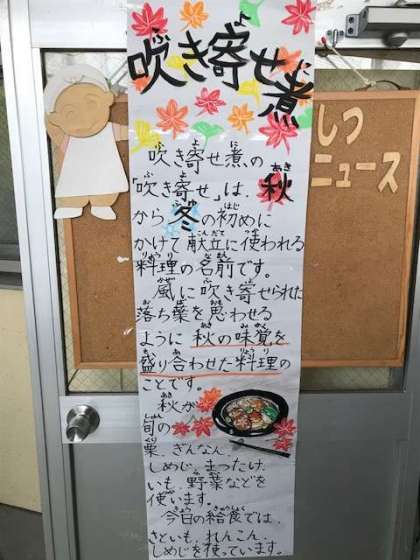 吹き寄せ煮
吹き寄せ煮の
「吹き寄せ」は、秋
から冬の初めに
かけて献立に使われる
料理の名前です。
風に吹き寄せられた
落ち葉を思わせる
ように秋の味覚を
盛り合わせた料理の
ことです。
秋が
旬の
栗、ぎんなん、
しめじ、まつたけ、
いも、野菜などを
使います。
今日の給食では、
さといも、れんこん、
しめじを使っています。
しつ
ニュース